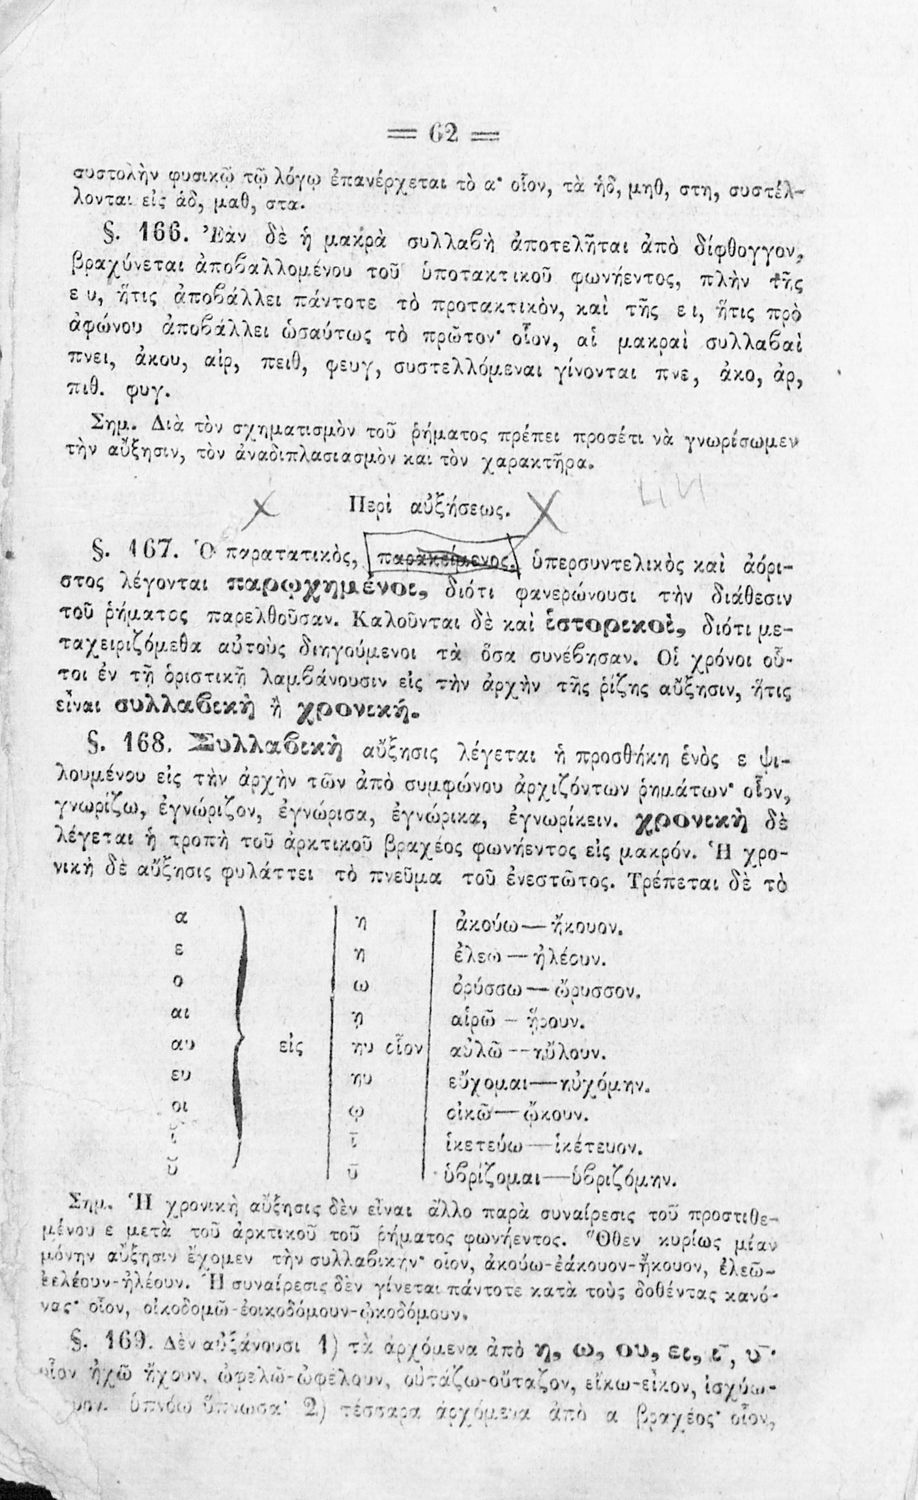 = 62 =
συστολὴν φυσικῷ τῷ λόγῳ ἐπανέρχεται τὸ α· οἷον, τὰ ἡδ, μηθ, στη, συστέλ-
λονται εἰς ἁδ, μαθ, στα.
§. 166. Ἐὰν δὲ ἡ μακρὰ συλλαβὴ ἀποτελῆται ἀπὸ δίφθογγον,
βραχύνεται ἀποβαλλομένου τοῦ ὑποτακτικοῦ φωνήεντος, πλὴν τῆς
ευ, ἥτις ἀποβάλλει πάντοτε τὸ προτακτικὸν, καὶ τῆς ει, ἥτις πρὸ
ἀφώνου ἀποβάλλει ὡσαύτως τὸ πρῶτον· οἷον, αἱ μακραὶ συλλαβαὶ
πνει, ἀκου, αἱρ, πειθ, φευγ, συστελλόμεναι γίνονται πνε, ἀκο, ἁρ,
πιθ. φυγ.
Σημ. Διὰ τὸν σχηματισμὸν τοῦ ῥήματος πρέπει προσέτι νὰ γνωρίσωμεν
τὴν αὔξησιν, τὸν ἀναδιπλασιασμὸν καὶ τὸν χαρακτῆρα.
Περὶ αὐξήσεως.
§. 167. Ὁ παρατατικὸς, παρακείμενος, ὑπερσυντελικὸς καὶ ἀόρι-
στος λέγονται παρῳχημένοι, διότι φανερώνουσι τὴν διάθεσιν
τοῦ ῥήματος παρελθοῦσαν. Καλοῦνται δὲ καὶ ἱστορικοὶ, διότι με-
ταχειριζόμεθα αὐτοὺς διηγούμενοι τὰ ὅσα συνέβησαν. Οἱ χρόνοι οὗ-
τοι ἐν τῇ ὁριστικῇ λαμβάνουσιν εἰς τὴν ἀρχὴν τῆς ῥίζης αὔξησιν, ἥτις
εἶναι συλλαβικὴ ἢ χρονική.
§. 168. Συλλαβικὴ αὔξησις λέγεται ἡ προσθήκη ἑνὸς ε ψι-
λουμένου εἰς τὴν ἀρχὴν τῶν ἀπὸ συμφώνου ἀρχιζόντων ῥημάτων· οἷον,
γνωρίζω, ἐγνώριζον, ἐγνώρισα, ἐγνώρικα, ἐγνωρίκειν. χρονικὴ δὲ
λέγεται ἡ τροπὴ τοῦ ἀρκτικοῦ βραχέος φωνήεντος εἰς μακρόν. Ἡ χρο-
νικὴ δὲ αὔξησις φυλάττει τὸ πνεῦμα τοῦ ἐνεστῶτος. Τρέπεται δὲ τὸ
α η ἀκούω—ἤκουον.
ε η ἐλεω—ἠλέουν.
ο ω ὀρύσσω—ὤρυσσον.
αι ῃ αἱρῶ—ᾕρουν.
αυ εἰς ηυ οἷον αὐλῶ—ηὔλουν.
ευ ηυ εὔχομαι—ηὐχόμην.
οι ῳ οἰκῶ—ᾤκουν.
ῐ ῑ ἱκετεύω—ἱκέτευον.
ῠ ῡ ὑβρίζομαι—ὑβριζόμην.
Σημ. Ἡ χρονικὴ αὔξησις δὲν εἶναι ἄλλο παρὰ συναίρεσις τοῦ προστιθε-
μένου ε μετὰ τοῦ ἀρκτικοῦ τοῦ ῥήματος φωνήεντος. Ὅθεν κυρίως μίαν
μόνην αὔξησιν ἔχομεν τὴν συλλαβικήν· οἷον, ἀκούω-ἐάκουον-ἤκουον, ἐλεῶ-
ἐελέουν-ἠλέουν. Ἡ συναίρεσις δὲν γίνεται πάντοτε κατὰ τοὺς δοθέντας κανό-
νας· οἷον, οἰκοδομῶ-ἐοικοδόμουν-ᾠκοδόμουν.
§. 169. Δὲν αὐξάνουσι 1) τὰ ἀρχόμενα ἀπὸ η, ω, ου, ει, ῑ, ῡ·
οἷον ἠχῶ ἤχουν, ὠφελῶ-ὠφέλουν, οὐτάζω-οὔταζον, εἴκω-εἶκον, ἰσχύω-
ὑπνόω ὕπνωσα· 2) τέσσαρα ἀρχόμενα ἀπὸ α βραχέος· οἷον,